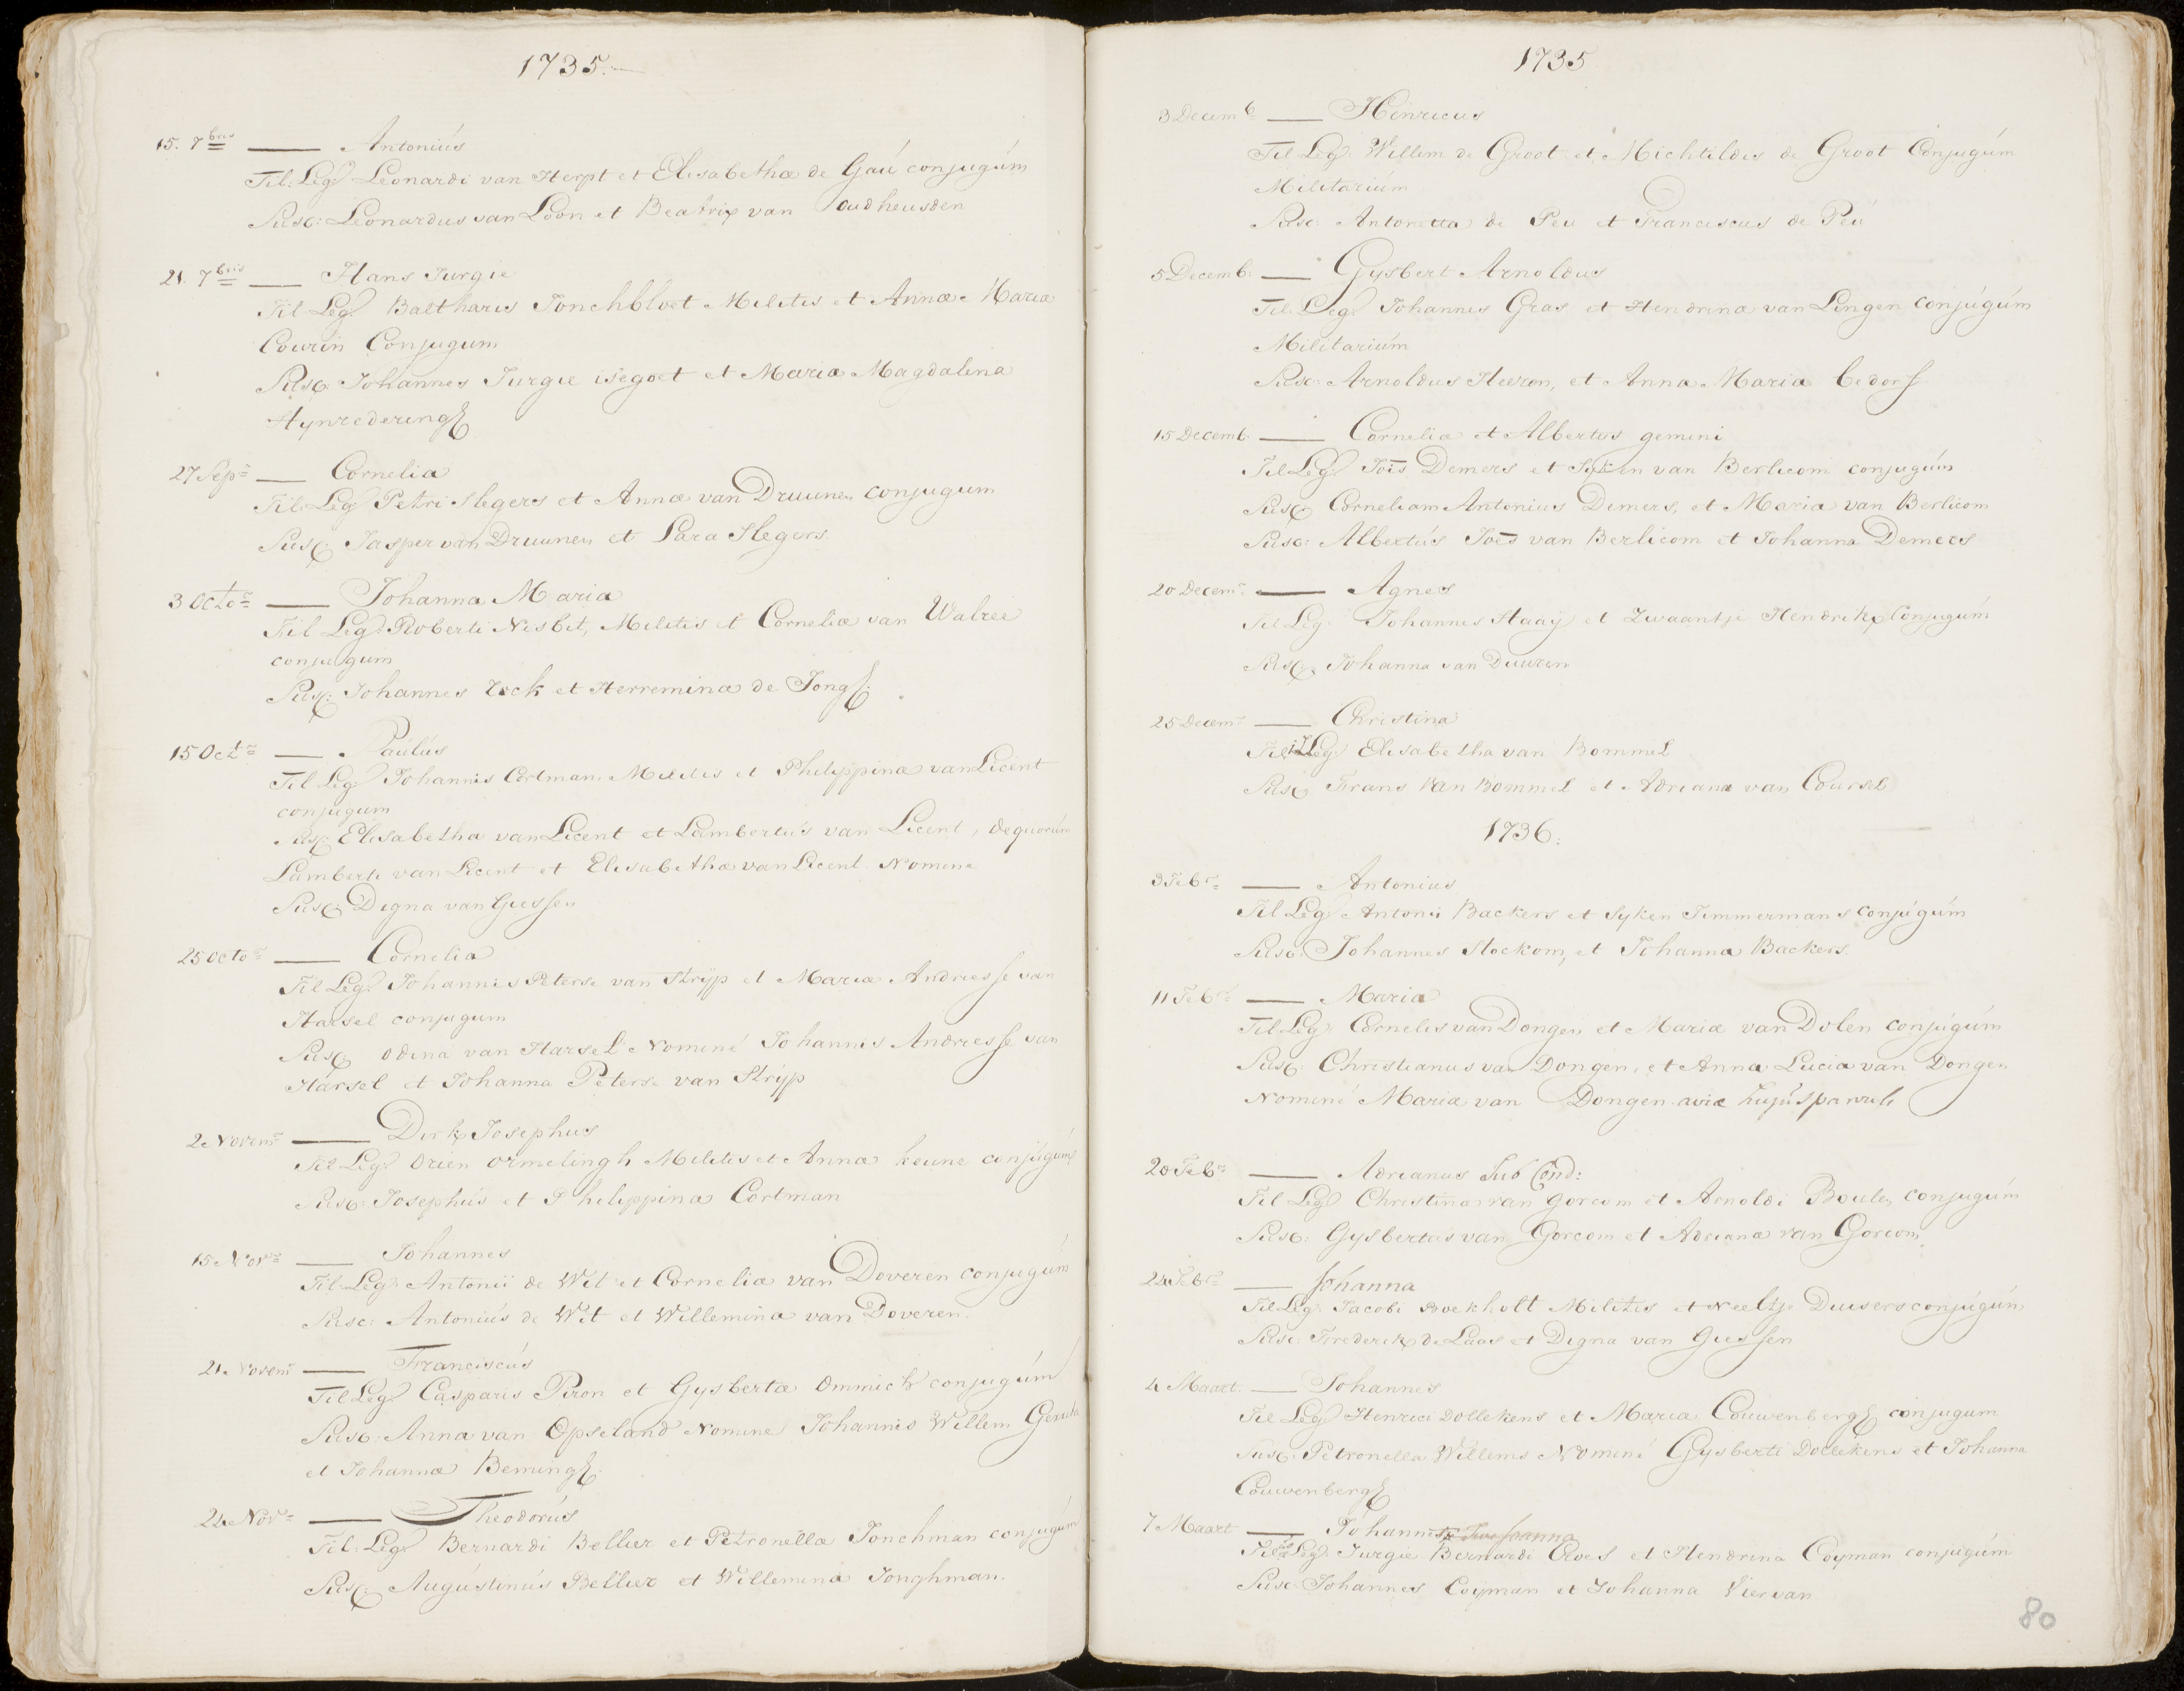 1735.
15. 7bris — Antoniús
Fil: Leg: Leonardi van Herpt et Elisabethæ de Gaú conjugúm
Susc: Leonardus van Loon et Beatrix van oudheusden
21. 7bris — Hans Jurgie
Fil Leg: Baltharis Jonchbloet Militis et Annæ Mariæ
Courin Conjugum
Susc: Johannes Jurgie isegoet et Maria Magdalena
Hynredering
27 Sepr — Cornelia
Fil: Leg: Petri Slegers et Annæ van Druunen conjugum
Susc: Jasper van Druunen et Sara Slegers
3 Octor — Johanna Maria
Fil Leg: Roberti Nisbit, Militis et Corneliæ van Walree
conjugum
Susc: Johannes Zock et Herremina de Jong:
15 Octr — Paúlús
Fil Leg: Johannis Cortman Militis et Philippina van Licent
conjugum
Susc: Elisabetha van Licent et Lambertús van Licent, de quorúm
Lamberti van Licent et Elisabethæ van Licent Nomine
Susc: Digna van Giessen
25 octor — Cornelia
Fil Leg: Johannis Peterse van Strijp et Mariæ Andriesse van
Harsel conjugum
Susc: Odina van Harsel Nominé Johannis Andriesse van
Harsel et Johanna Peterse van Strijp
2 Novemr — Dirk Josephus
Fil Leg: Orien ormelingh Militis et Anna keune conjúgúm
Susc: Josephús et Philippina Cortman
15 Novr — Johannes
Fil Leg: Antonii de Wit et Corneliæ van Doveren conjugúm
Susc: Antoniús de Wit et Willemina van Doveren.
21 Novemr — Franciscús
Fil Leg: Casparis Piron et Gysbertæ ommich conjugúm
Susc: Anna van Opseland Nomine Johannis Willem
et Johannæ Beming:
24 Novr — Theodorús
Fil: Leg: Bernardi Bellier et Petronella Jonchman conjugúm
Susc: Augústinús Bellier et Willemina Jonghman.
1735
3 Decemb — Hinricus
Fil Leg: Willem de Groot et Michtildis de Groot Conjugúm
Militariúm
Susc: Antonetta de Peu et Franciscus de Peú
5 Decemb: — Gysbert Arnoldus
Fil. Leg: Johannes Gras et Hendrina van Lingen conjúgúm
Militariúm
Susc: Arnoldus Heeren, et Anna Maria bedorf
15 Decemb. — Cornelia et Albertus gemini
Fil Leg: Jois Demers et Syken van Berlicom conjugúm
Susc: Corneliam Antonius Demers, et Maria van Berlicom
Susc: Albertús Joes van Berlicom et Johanna Demers
20 Decemr. — Agnes
Fil Leg: Johannes Haaij et Zwaantje Hendrikx Conjugúm
Susc: Johanna van Duuren
25 Decemr — Christina
Fil: ill Leg: Elisabetha van Bommel
Susc: Frans Van Bommel et Adriana van Coursel
1736:
3 Febr — Antonius
Fil Leg: Antonii Backers et Syken Timmermans conjúgúm
Susc: Johannes Stockom, et Johanna Backers.
11 Febr — Maria
Fil Leg: Cornelis van Dongen et Mariæ van Dolen conjúgúm
Susc: Christianus van Dongen, et Anna Lucia van Dongen
Nominé Mariæ van Dongen aviæ hujús parvuli
20 Febr — Adrianus Sub Cond:
Fil Leg: Christina van gorcom et Arnoldi Boule, conjugúm
Susc: Gysbertus van Gorcom et Adriana van Gorcom
24 Febr — Johanna
Fil Leg: Jacobi Boekholt Militis et Neeltje Duisers conjúgúm
Susc: Frederik de Laas et Digna van Giessen
4 Maart. — Johannes
Fil Leg: Henrici Dollekens et Maria Couwenberg conjugum
Susc: Petronella Willems Nominé Gysberti Dollekens et Johanna
Couwenberg
7 Maart — Johannes Joanna
Fil: Leg: Jurgie Bernardi Elves et Hendrina Coyman conjúgúm
Susc: Johannes Coijman et Johanna Viervan
80